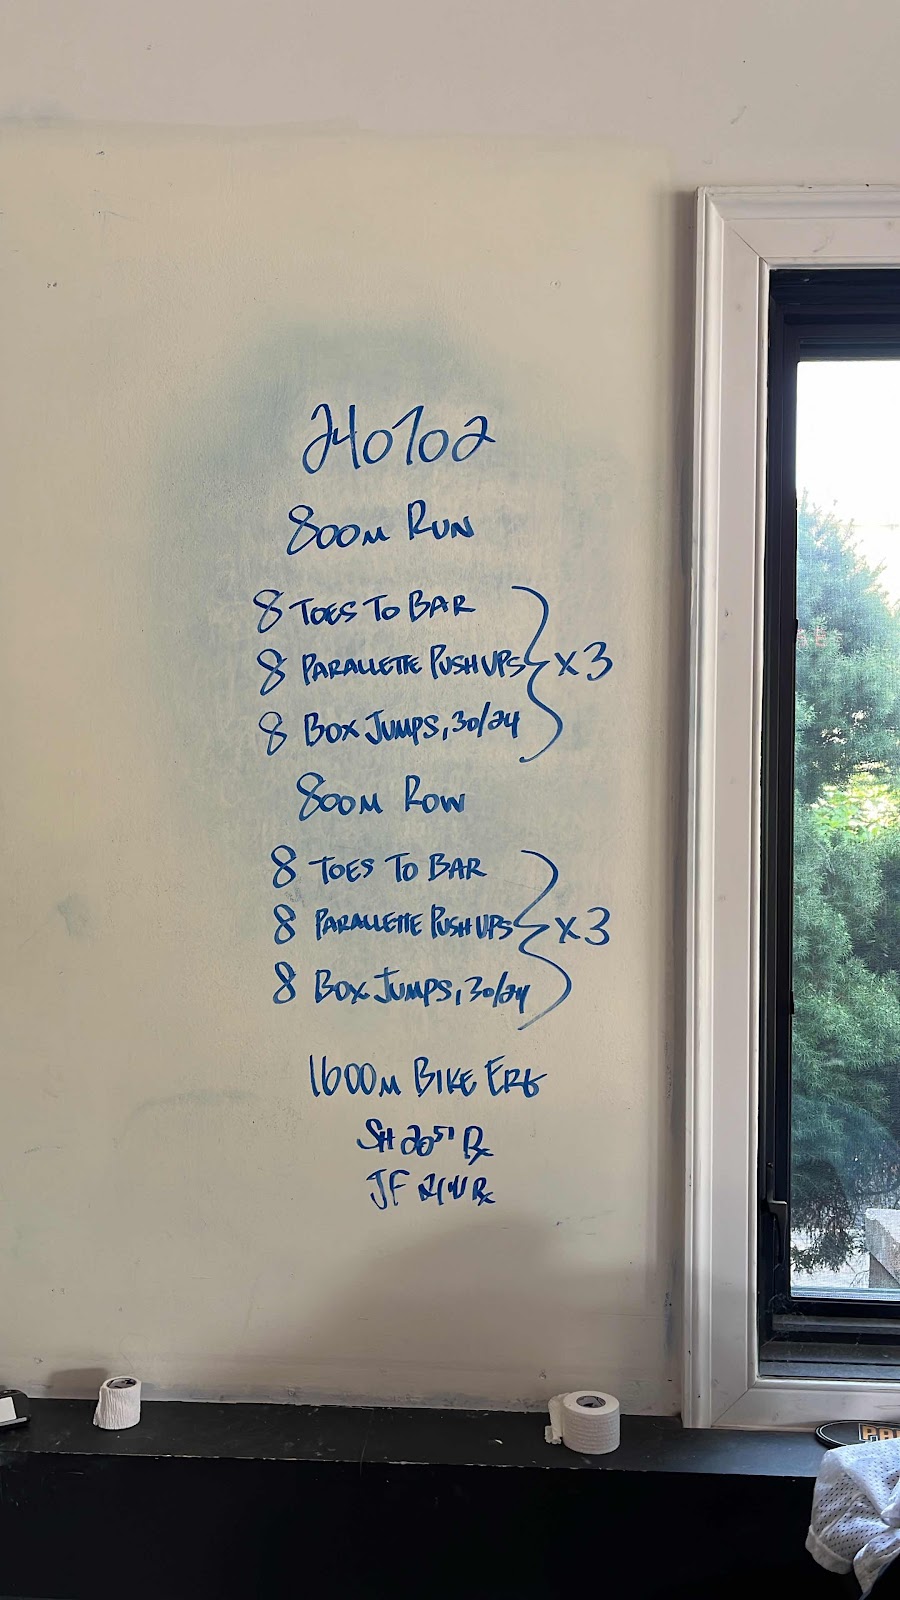 240702
800M RUN
8 TOES TO BAR
8 PARALLETTE PUSH UPS
x3
8 BOX JUMPS, 30/24
800M ROW
8 TOES TO BAR
8 PARALLETTE PUSH UPS
x3
8 BOX JUMPS, 30/24
1600M BIKE ERG
SH 20⁵¹ Rx
JF Rx